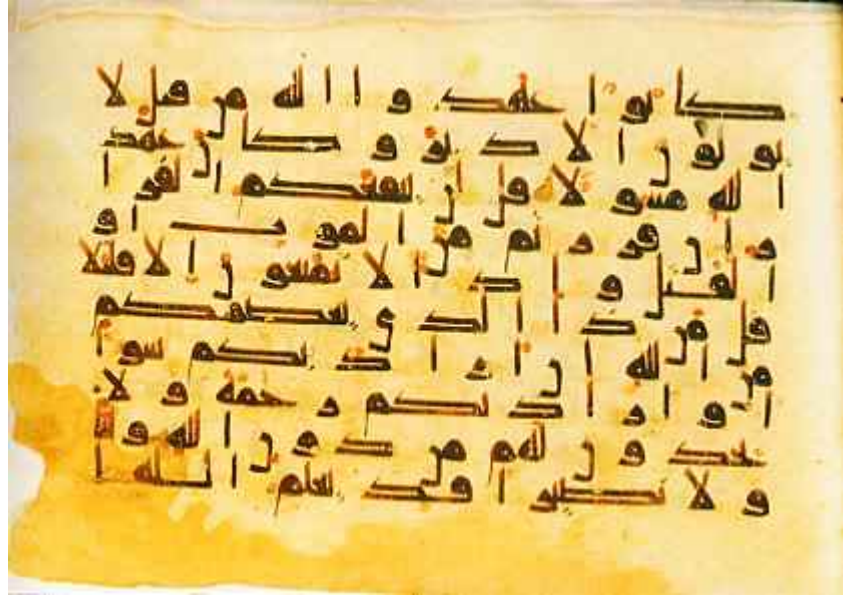 كانوا عهدوا الله من قبل لا
يولون الادبر وكان عهد
الله مسولا قل لن ينفعكم الفرا
ر ان فررتم من الموت او
القتل واذا لا تمتعون الا قليلا
قل من ذا الذي يعصمكم
من الله ان اراد بكم سوا
او اراد بكم رحمة ولا
يجدون لهم من دون الله وليا
ولا نصيرا قد يعلم الله ا